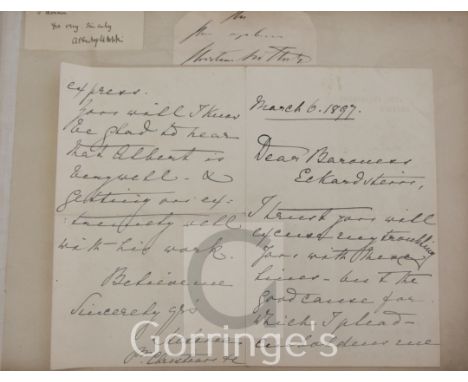 So very sincerely
express.
You will I know
be glad to hear
that Albert is
very well - &
getting on ex-
tremely well
with his work.
Believe me
Sincerely yrs
March 6. 1897.
Dear Baroness
Eckardstein,
I trust you will
excuse my troubling
you with these
lines - but the
good cause for
which I plead -
emboldens me
Gorringe's